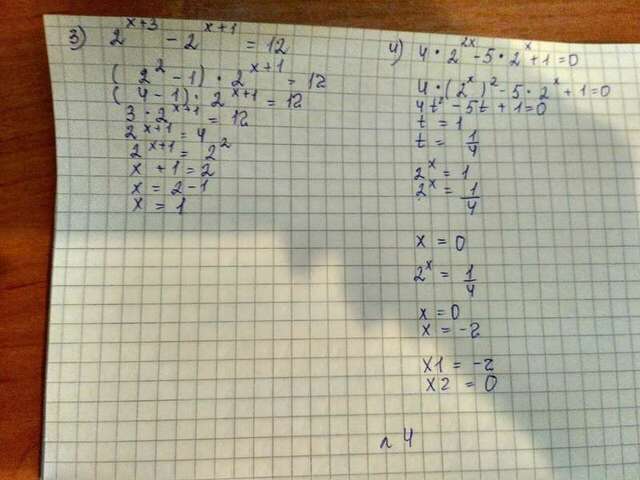 3) 2^(x+3) - 2^(x+1) = 12
(2^2 - 1) · 2^(x+1) = 12
(4 - 1) · 2^(x+1) = 12
3 · 2^(x+1) = 12
2^(x+1) = 4
2^(x+1) = 2^2
x + 1 = 2
x = 2 - 1
x = 1
4) 4 · 2^(2x) - 5 · 2^x + 1 = 0
4 · (2^x)^2 - 5 · 2^x + 1 = 0
4t^2 - 5t + 1 = 0
t = 1
t = 1/4
2^x = 1
2^x = 1/4
x = 0
2^x = 1/4
x = 0
x = -2
x1 = -2
x2 = 0
л 4